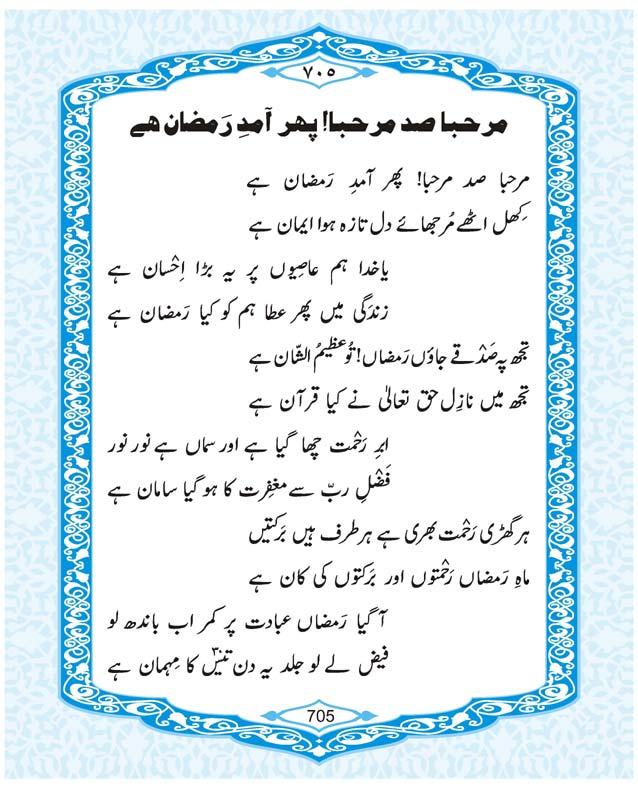 ۷۰۵
مرحبا صد مرحبا! پھر آمدِ رَمضان ہے
مرحبا صد مرحبا! پھر آمدِ رَمضان ہے
کِھل اٹھے مُرجھائے دل تازہ ہوا ایمان ہے
یاخدا ہم عاصیوں پر یہ بڑا اِحْسان ہے
زندگی میں پھر عطا ہم کو کیا رَمضان ہے
تجھ پہ صَدْقے جاؤں رَمضاں! تُو عظیمُ الشّان ہے
تجھ میں نازِل حق تعالیٰ نے کیا قرآن ہے
ابرِ رَحْمت چھا گیا ہے اور سماں ہے نور نور
فَضْلِ ربّ سے مغفِرت کا ہو گیا سامان ہے
ہر گھڑی رَحْمت بھری ہے ہر طرف ہیں بَرَکتیں
ماہِ رَمضاں رَحْمتوں اور بَرَکتوں کی کان ہے
آ گیا رَمضاں عبادت پر کمر اب باندھ لو
فیض لے لو جلد یہ دن تیٖس۳۰ کا مِہمان ہے
705